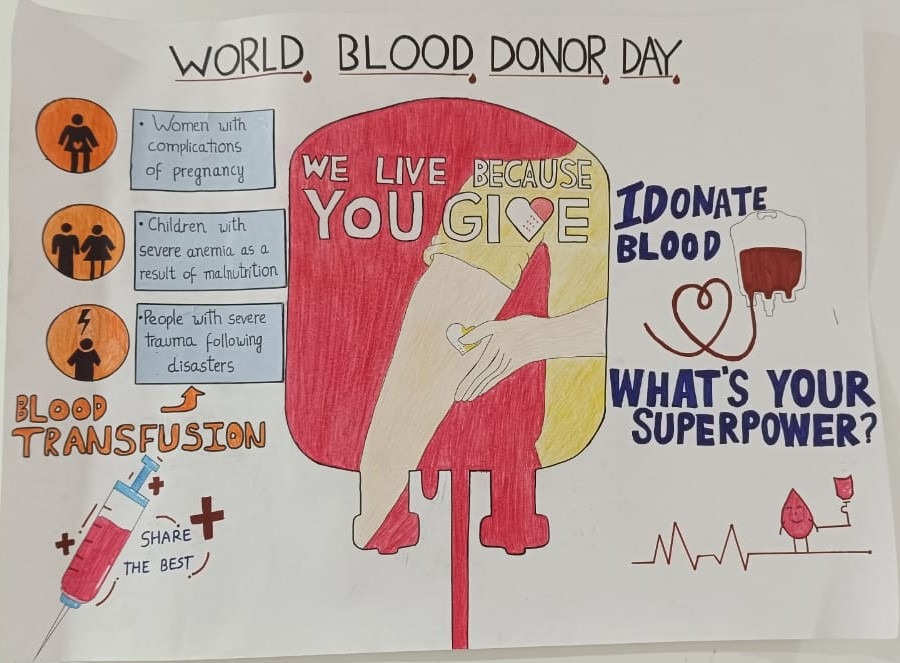 WORLD BLOOD DONOR DAY
• Women with
complications
of pregnancy
• Children with
severe anemia as a
result of malnutrition
• People with severe
trauma following
disasters
BLOOD
TRANSFUSION
SHARE
THE BEST
WE LIVE BECAUSE
YOU GIVE
I DONATE
BLOOD
WHAT'S YOUR
SUPERPOWER?